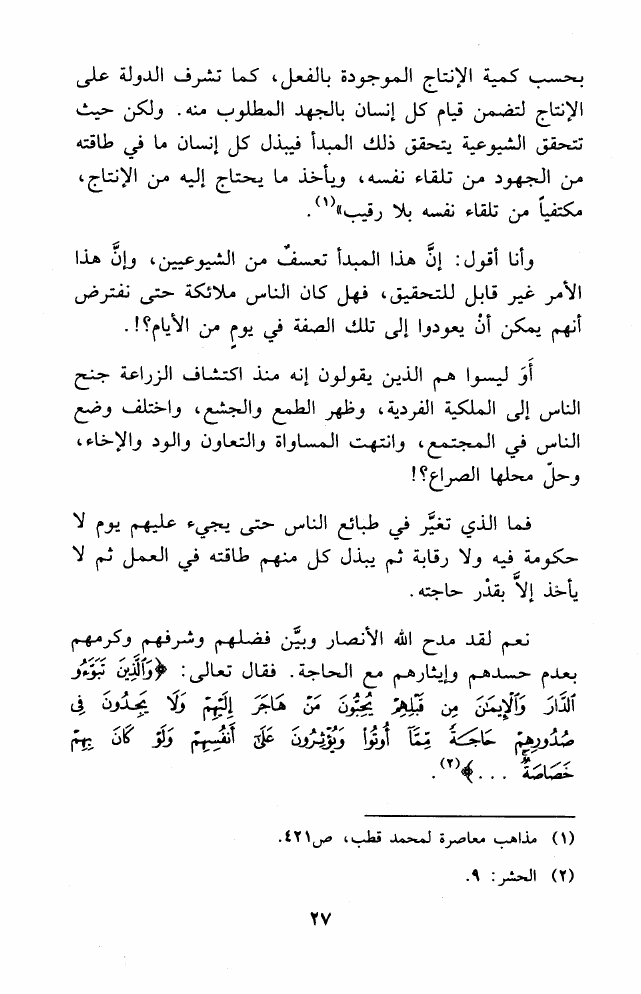 بحسب كمية الإنتاج الموجودة بالفعل، كما تشرف الدولة على
الإنتاج لتضمن قيام كل إنسان بالجهد المطلوب منه. ولكن حيث
تتحقق الشيوعية يتحقق ذلك المبدأ فيبذل كل إنسان ما في طاقته
من الجهود من تلقاء نفسه، ويأخذ ما يحتاج إليه من الإنتاج،
مكتفياً من تلقاء نفسه بلا رقيب»(١).
وأنا أقول: إنَّ هذا المبدأ تعسفٌ من الشيوعيين، وإنَّ هذا
الأمر غير قابل للتحقيق، فهل كان الناس ملائكة حتى نفترض
أنهم يمكن أنْ يعودوا إلى تلك الصفة في يومٍ من الأيام؟!.
أَوَ ليسوا هم الذين يقولون إنه منذ اكتشاف الزراعة جنح
الناس إلى الملكية الفردية، وظهر الطمع والجشع، واختلف وضع
الناس في المجتمع، وانتهت المساواة والتعاون والود والإخاء،
وحلّ محلها الصراع؟!
فما الذي تغيَّر في طبائع الناس حتى يجيء عليهم يوم لا
حكومة فيه ولا رقابة ثم يبذل كل منهم طاقته في العمل ثم لا
يأخذ إلاَّ بقدْر حاجته.
نعم لقد مدح الله الأنصار وبيَّن فضلهم وشرفهم وكرمهم
بعدم حسدهم وإيثارهم مع الحاجة. فقال تعالى: ﴿وَٱلَّذِينَ تَبَوَّءُو
ٱلدَّارَ وَٱلْإِيمَٰنَ مِن قَبْلِهِمْ يُحِبُّونَ مَنْ هَاجَرَ إِلَيْهِمْ وَلَا يَجِدُونَ فِى
صُدُورِهِمْ حَاجَةً مِّمَّآ أُوتُوا۟ وَيُؤْثِرُونَ عَلَىٰٓ أَنفُسِهِمْ وَلَوْ كَانَ بِهِمْ
خَصَاصَةٌ ...﴾(٢).
(١) مذاهب معاصرة لمحمد قطب، ص٤٢١.
(٢) الحشر: ٩.
٢٧